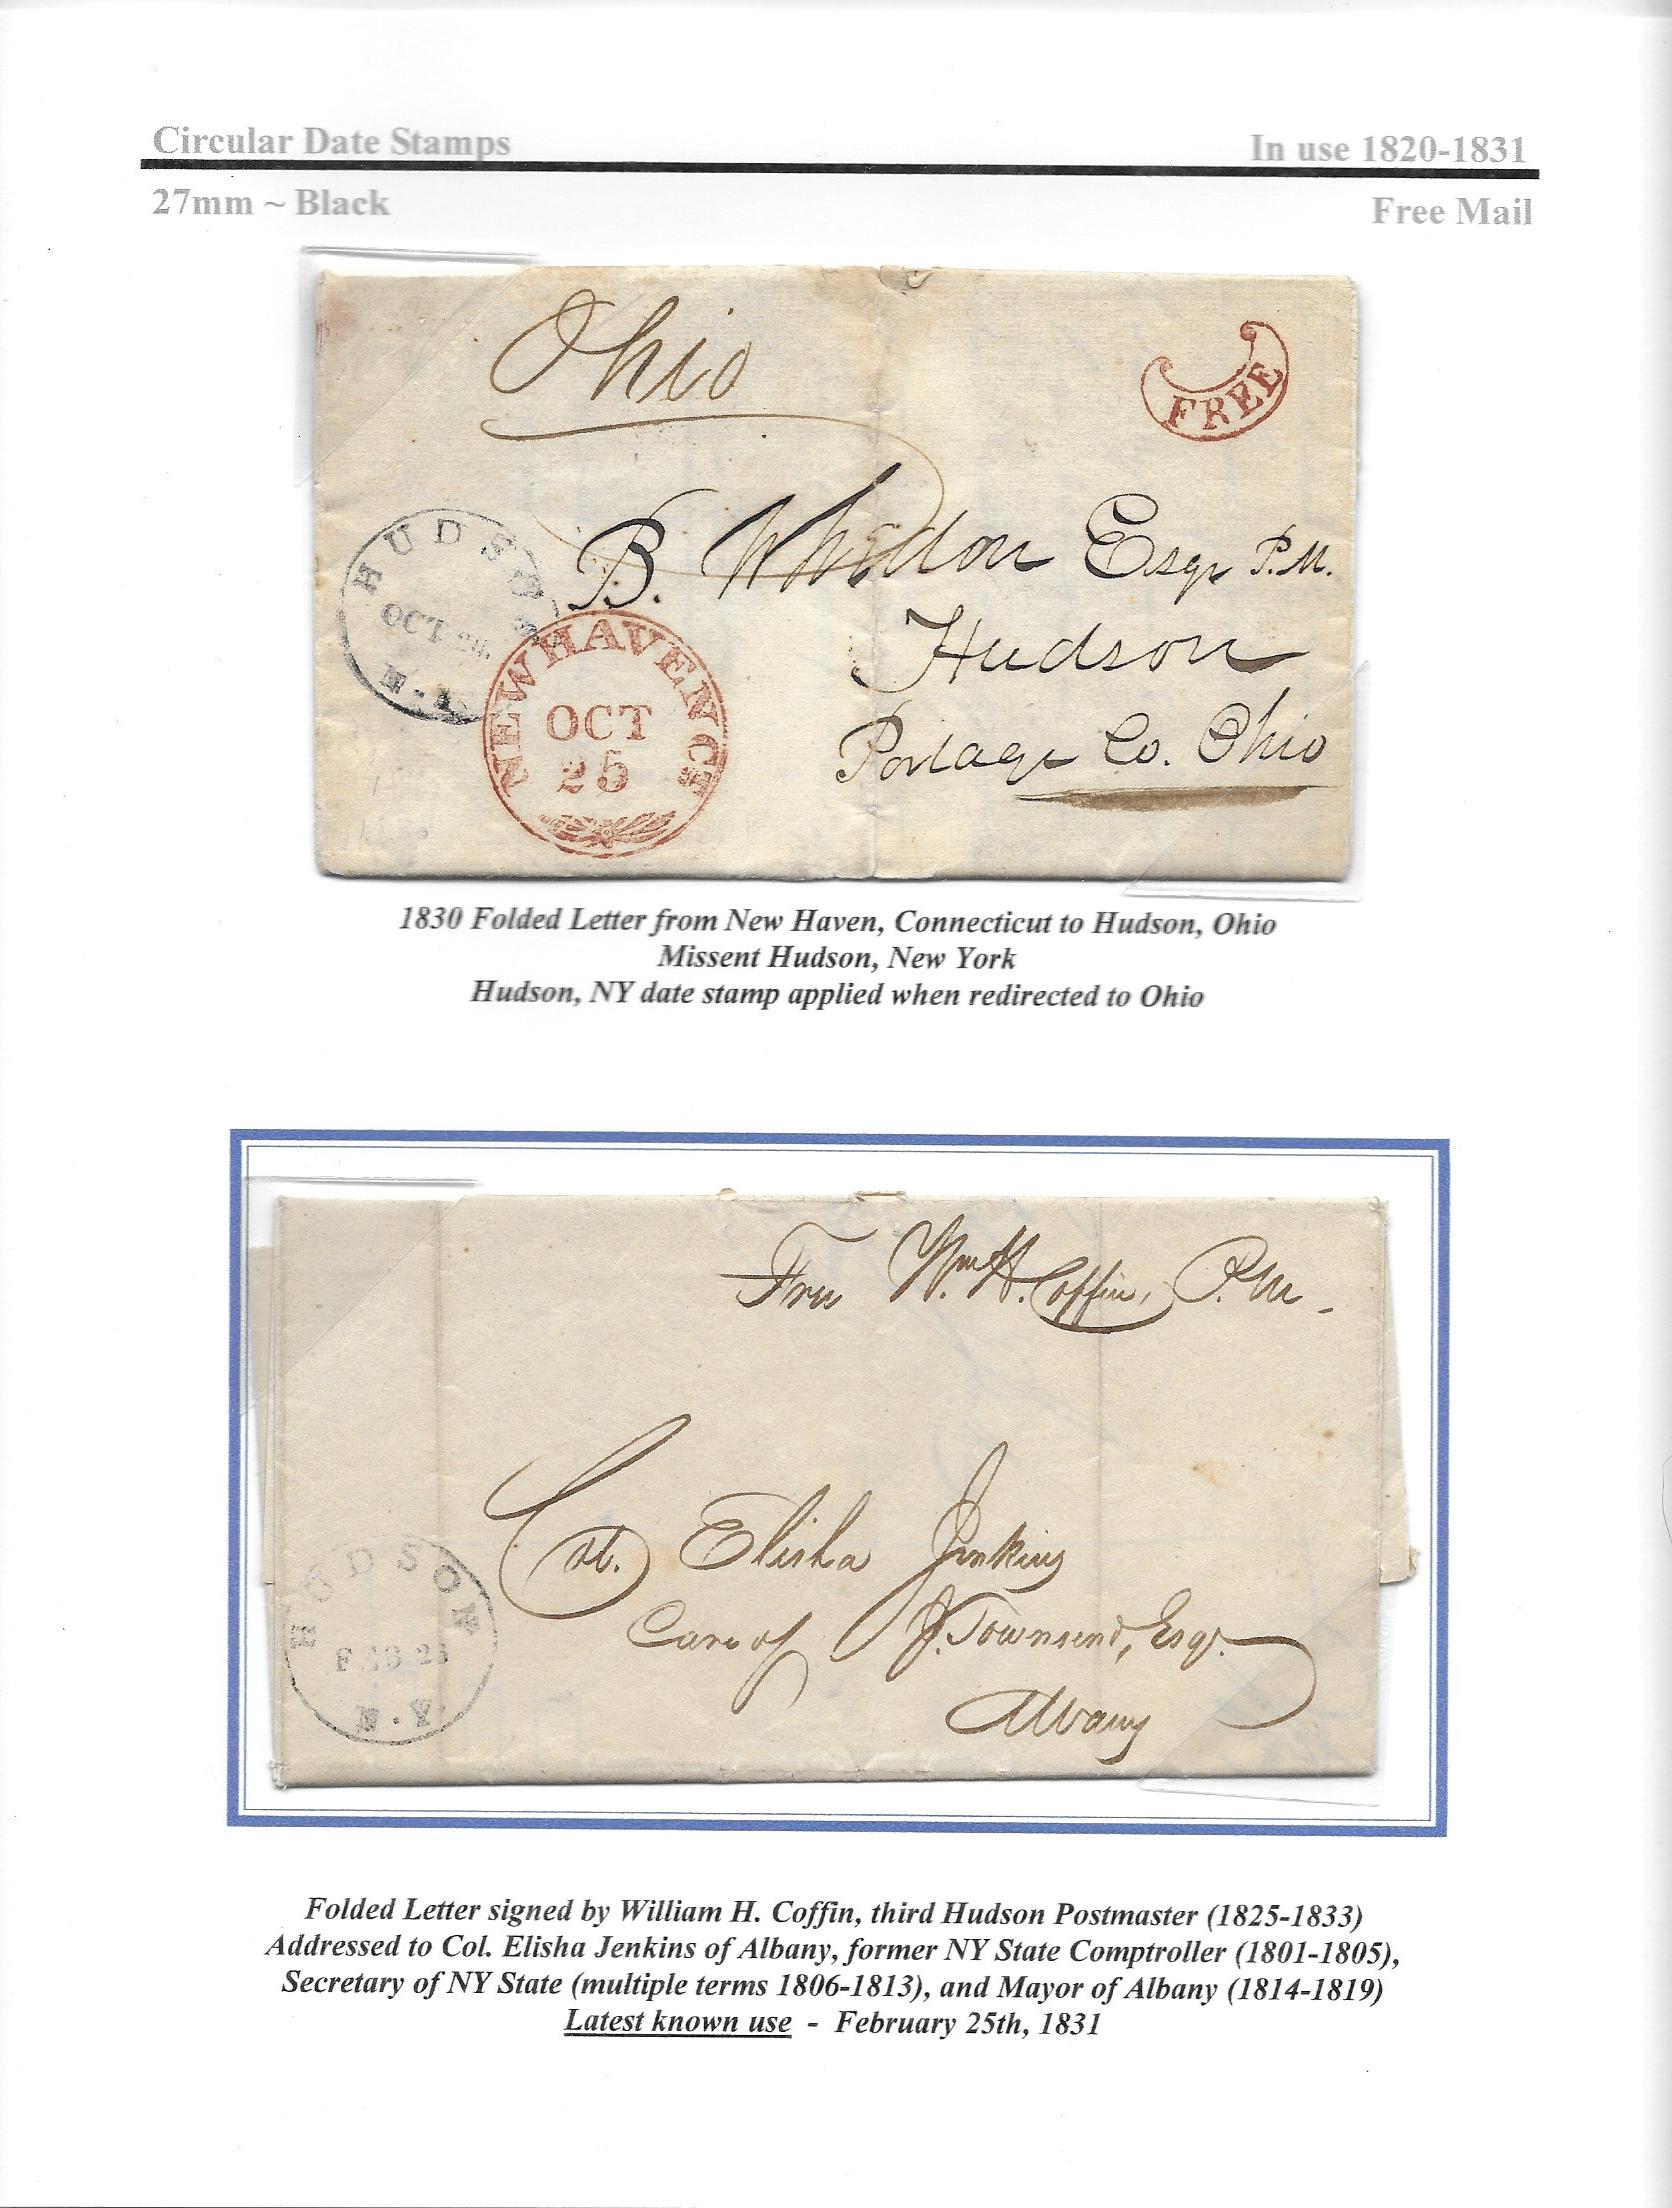 Circular Date Stamps
In use 1820-1831
27mm ~ Black
Free Mail
Ohio
FREE
HUDSON
OCT 28
N.Y.
B. Whedon Esqr P.M.
Hudson
Portage Co. Ohio
NEW HAVEN CT
OCT
25
1830 Folded Letter from New Haven, Connecticut to Hudson, Ohio
Missent Hudson, New York
Hudson, NY date stamp applied when redirected to Ohio
Free Wm. H. Coffin, P.M.
Col. Elisha Jenkins
Care of J. Townsend, Esqr.
Albany
HUDSON
N.Y.
Folded Letter signed by William H. Coffin, third Hudson Postmaster (1825-1833)
Addressed to Col. Elisha Jenkins of Albany, former NY State Comptroller (1801-1805),
Secretary of NY State (multiple terms 1806-1813), and Mayor of Albany (1814-1819)
Latest known use - February 25th, 1831